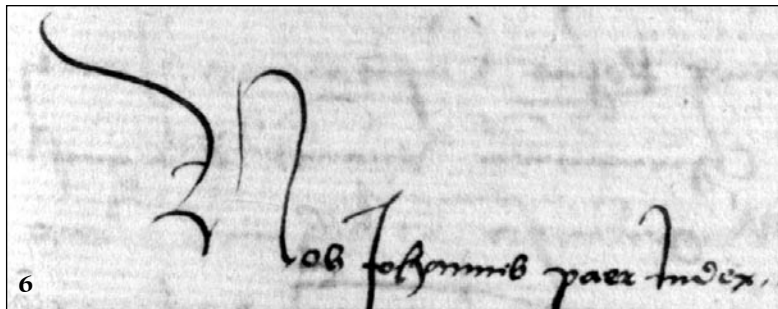 Nos Johannes paer Judex.
6